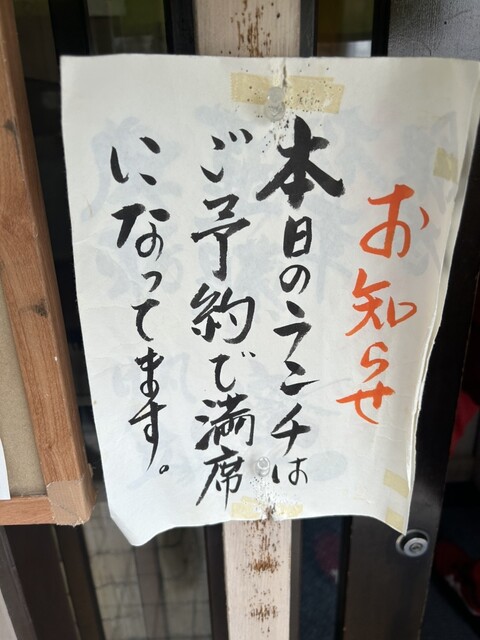 お知らせ
本日のランチは
ご予約で満席
になってます。